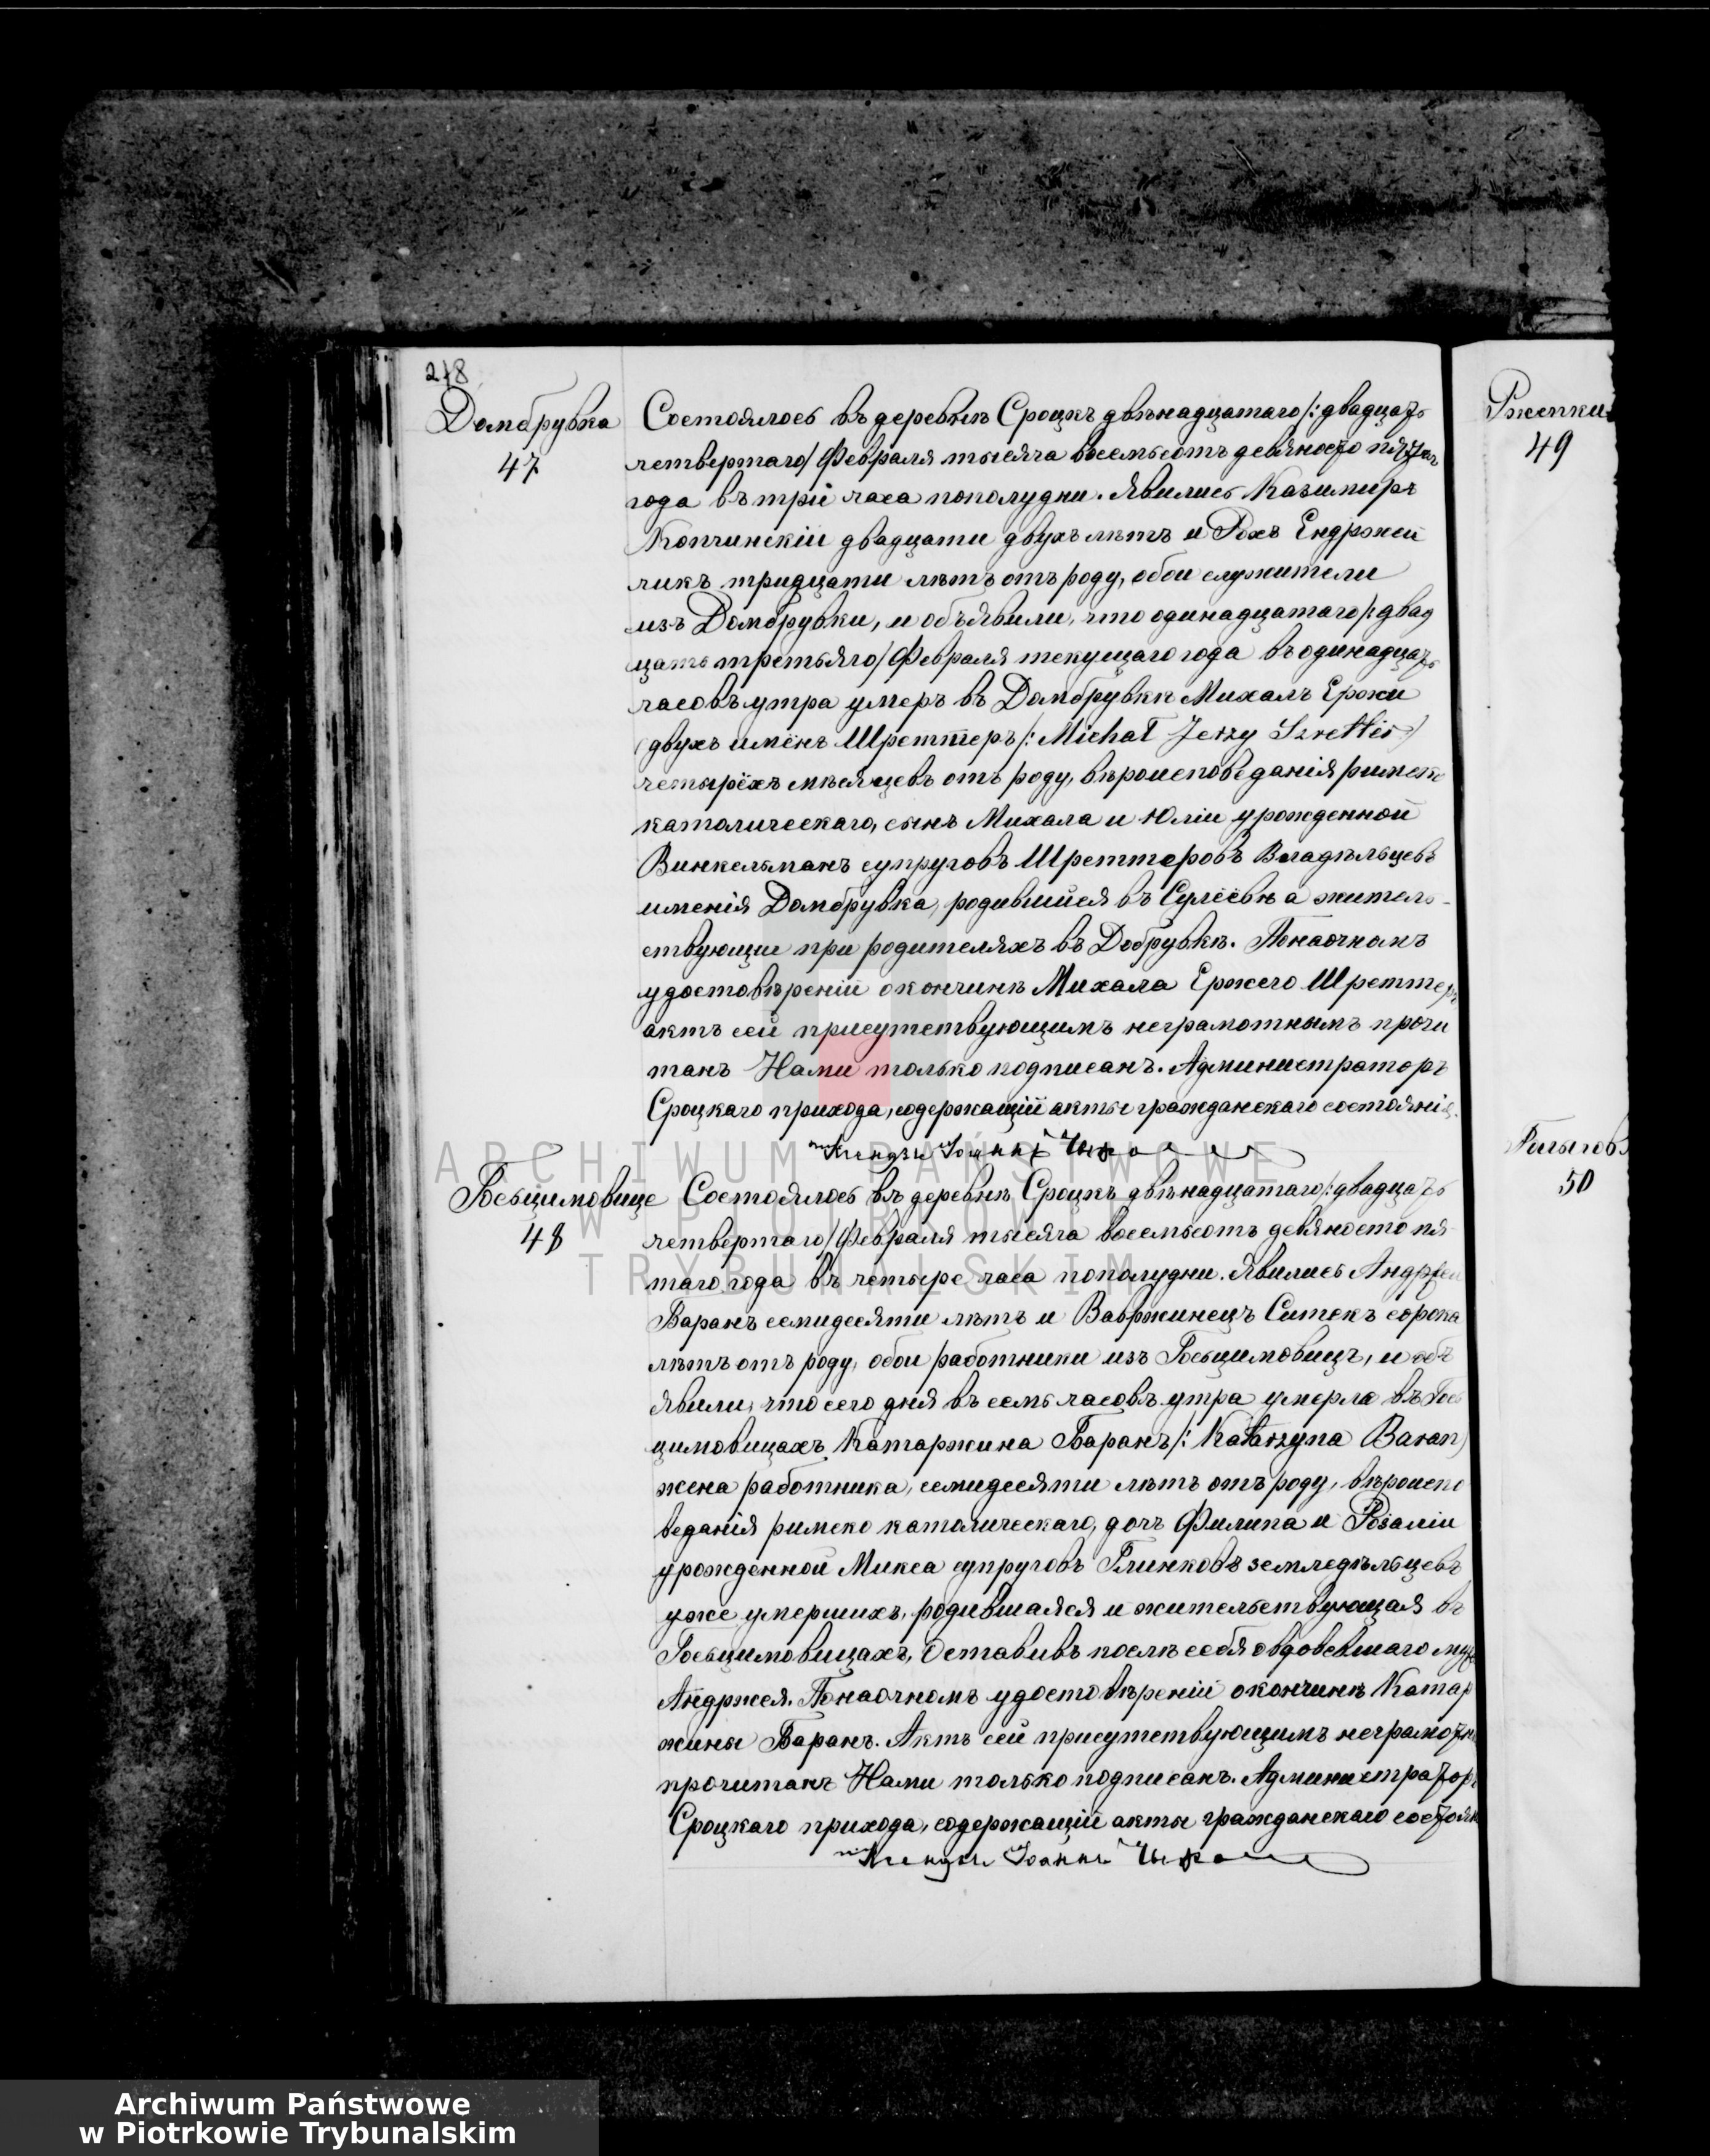 218
Домбрувка
47
Состоялось въ деревнѣ Сроцкъ двѣнадцатаго /: двадцать
четвертаго/ Февраля тысяча восемьсотъ девяносто пятаго
года въ три часа пополудни. Явились Казимиръ
Копчинскій двадцати двухъ лѣтъ и Рохъ Ендржей
чикъ тридцати лѣтъ отъ роду, обои служители
изъ Домбрувки, и объявили, что одинадцатаго /: двад
цать третьяго/ Февраля текущаго года въ одинадцать
часовъ утра умеръ въ Домбрувкѣ Михалъ Ержи
(двухъ имёнъ Шреттеръ /: Michał Jerzy Szretter)
четырёхъ мѣсяцевъ отъ роду, вѣроисповеданія римско
католическаго, сынъ Михала и Юліи урожденной
Винкельманъ супруговъ Шреттеровъ Владѣльцевъ
именія Домбрувка, родившийся въ Сулёёвѣ а житель-
ствующи при родителяхъ въ Добрувкѣ. Понаочномъ
удостовѣреніи окончинѣ Михала Ержего Шреттера
актъ сей присутствующимъ неграмотнымъ прочи
танъ Нами только подписанъ. Администраторъ
Сроцкаго прихода, содержащій акты гражданскаго состоянія.
Ксендзъ Іоаннъ
Госьцимовице
48
Состоялось въ деревнѣ Сроцкъ двѣнадцатаго /: двадцать
четвертаго/ Февраля тысяча восемьсотъ девяносто пя
таго года въ четыре часа пополудни. Явились Андржей
Баранъ семидесяти лѣтъ и Вавржинецъ Ситекъ сорока
лѣтъ отъ роду, обои работники изъ Госьцимовицъ, и объ
явили, что сего дня въ семь часовъ утра умерла въ Гось
цимовицахъ Катаржина Баранъ /: Katarzyna Baran)
жена работника, семидесяти лѣтъ отъ роду, вѣроиспо
веданія римско католическаго, дочь Филипа и Розаліи
урожденной Микса супруговъ Глинковъ земледѣльцевъ
уже умершихъ, родившаяся и жительствующая въ
Госьцимовицахъ, Оставивъ послѣ себя овдовевшаго мужа
Андржея. Понаочномъ удостовѣреніи окончинѣ Катар
жины Баранъ. Актъ сей присутствующимъ неграмотн
прочитанъ Нами только подписанъ. Администраторъ
Сроцкаго прихода, содержащій акты гражданскаго состоян
Ксендзъ Іоаннъ
Ржепки
49
50
ARCHIWUM PAŃSTWOWE
W PIOTRKOWIE
TRYBUNALSKIM
Archiwum Państwowe
w Piotrkowie Trybunalskim